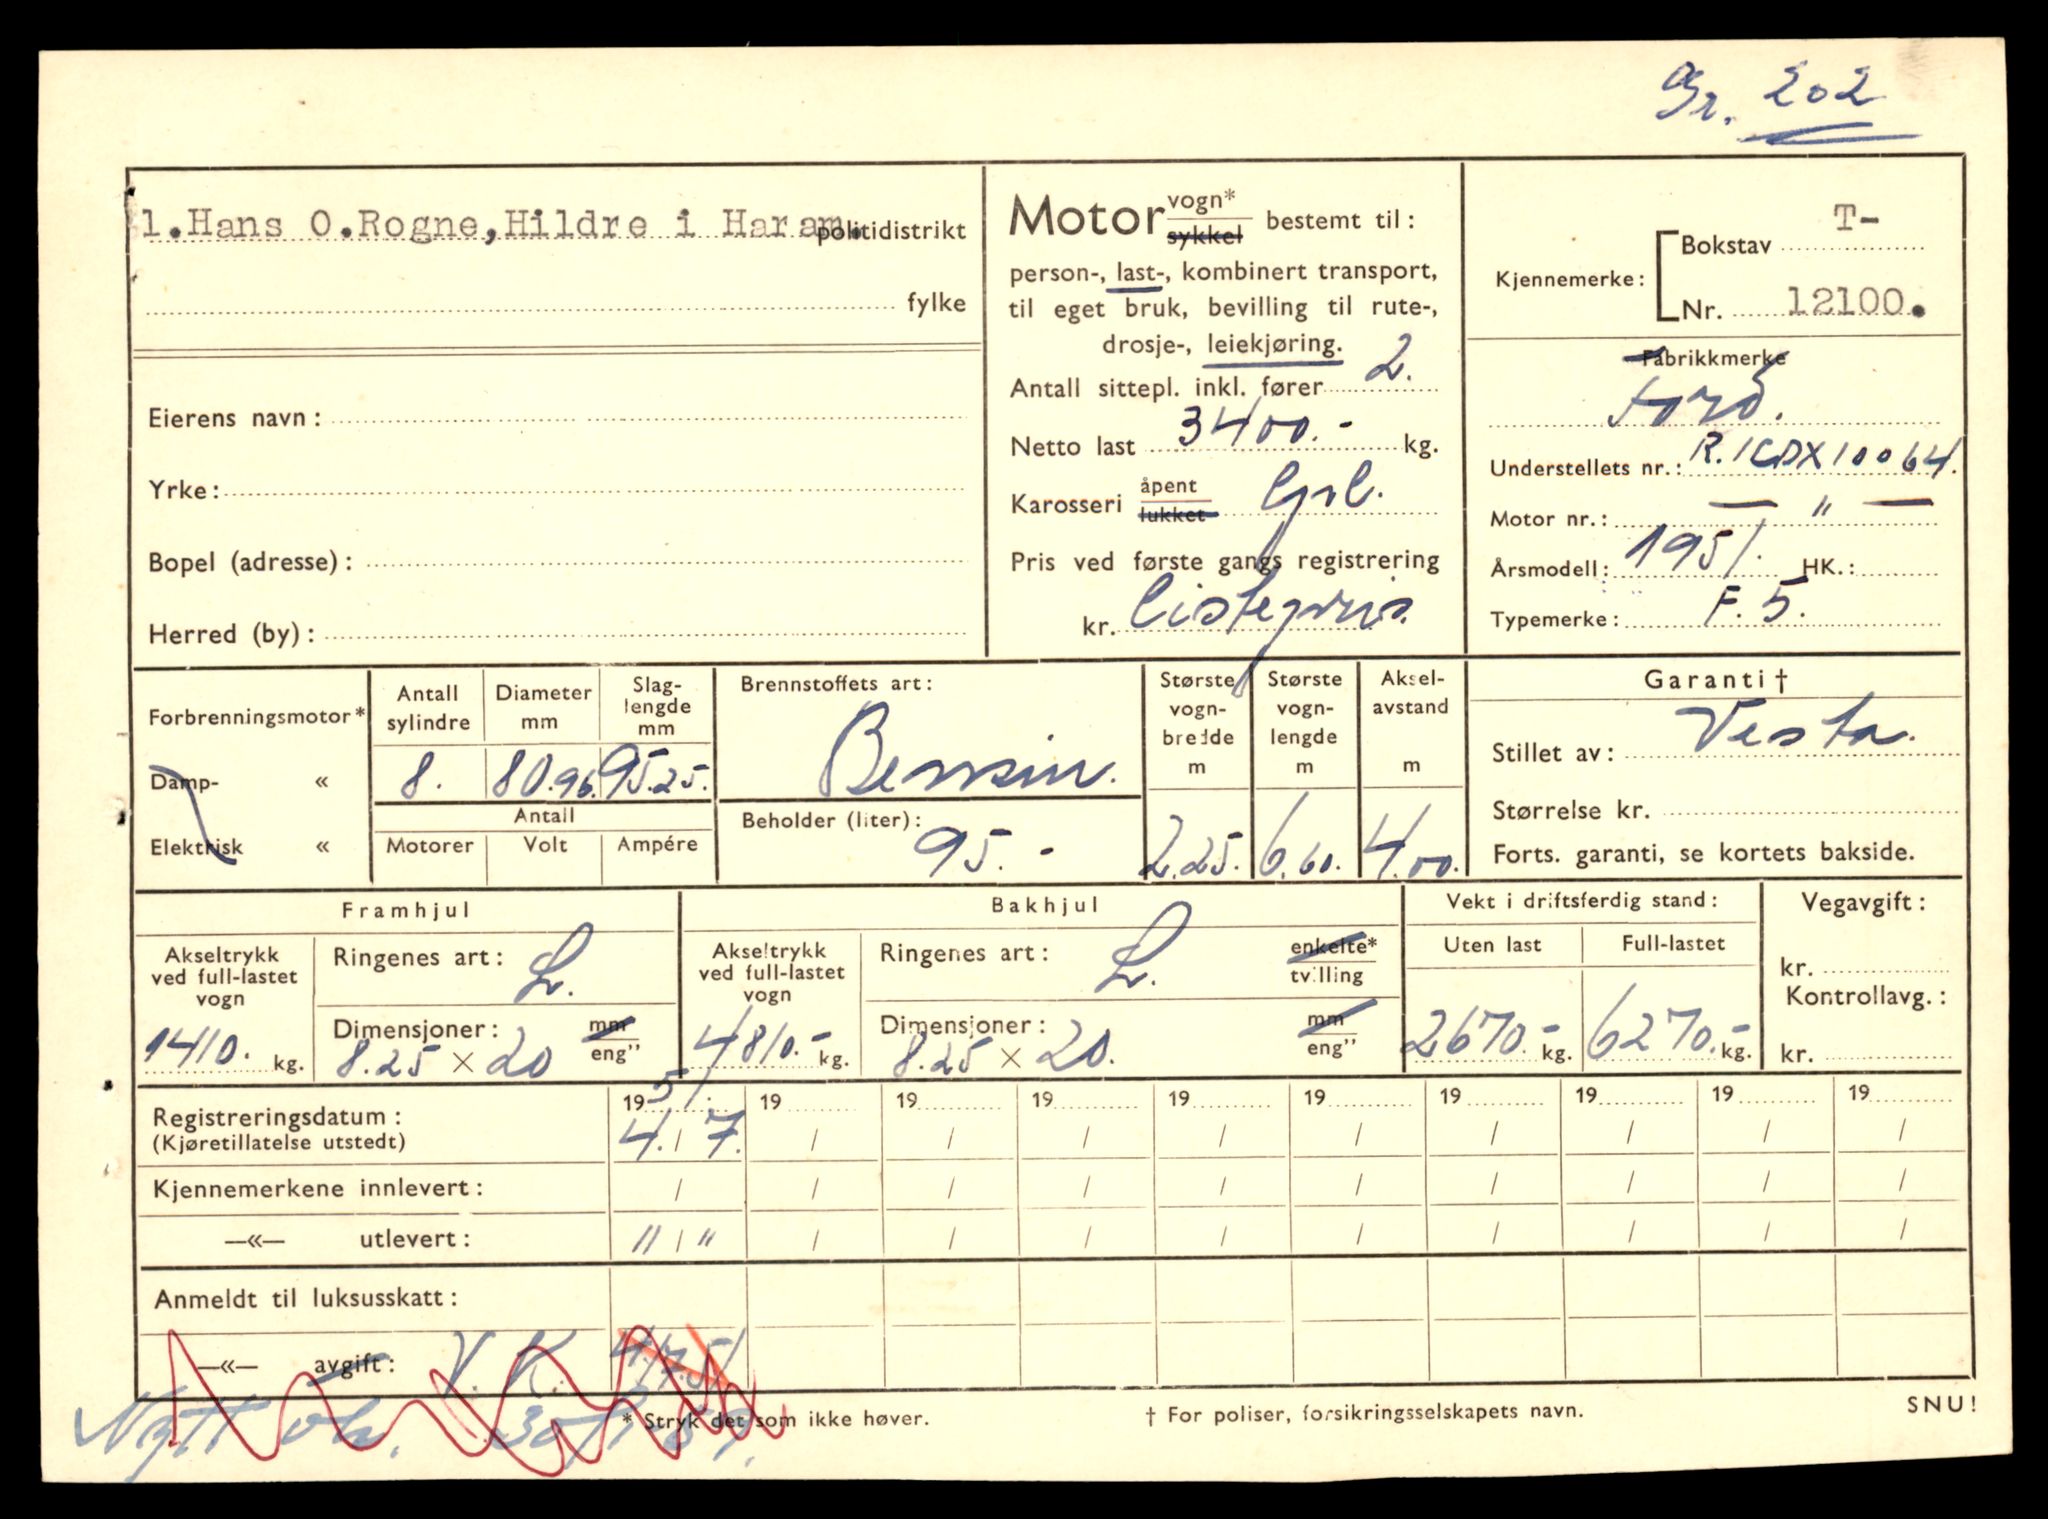 Gr. 202
1.Hans O.Rogne,Hildre i Haram. politidistrikt
fylke
Eierens navn:
Yrke:
Bopel (adresse):
Herred (by):
Motor vogn* sykkel bestemt til:
person-, last-, kombinert transport,
til eget bruk, bevilling til rute-,
drosje-, leiekjøring.
Antall sittepl. inkl. fører 2.
Netto last 3400.- kg.
Karosseri åpent lukket
Pris ved første gangs registrering
kr. Listepris.
Kjennemerke: Bokstav T-
Nr. 12100.
Fabrikkmerke
Ford.
Understellets nr.: R.1CDX10064.
Motor nr.: — " —
Årsmodell: 1951. HK.:
Typemerke: F. 5.
Forbrenningsmotor*
Damp- «
Elektrisk «
Antall sylindre
8.
Diameter mm
80.96.
Slag-lengde mm
95.25.
Antall
Motorer Volt Ampére
Brennstoffets art:
Bensin.
Beholder (liter):
95.-
Største vogn-bredde m
2.25.
Største vogn-lengde m
6.60.
Aksel-avstand m
4.00.
Garanti †
Stillet av: Vesta.
Størrelse kr.
Forts. garanti, se kortets bakside.
Framhjul
Akseltrykk ved full-lastet vogn
1410. kg.
Ringenes art: L.
Dimensjoner: mm eng"
8.25 × 20
Bakhjul
Akseltrykk ved full-lastet vogn
4810.- kg.
Ringenes art: L. enkelte* tvilling
Dimensjoner: mm eng"
8.25 × 20.
Vekt i driftsferdig stand:
Uten last Full-lastet
2670.- kg. 6270.- kg.
Vegavgift:
kr.
Kontrollavg.:
kr.
Registreringsdatum: 1951. 19 19 19 19 19 19 19 19 19
(Kjøretillatelse utstedt) 4./7. / / / / / / / / /
Kjennemerkene innlevert: / / / / / / / / / /
—«— utlevert: " / " / / / / / / / / /
Anmeldt til luksusskatt:
—«— avgift: V. K. 4/7.51
Nytt
* Stryk det som ikke høver.
† For poliser, forsikringsselskapets navn.
SNU!